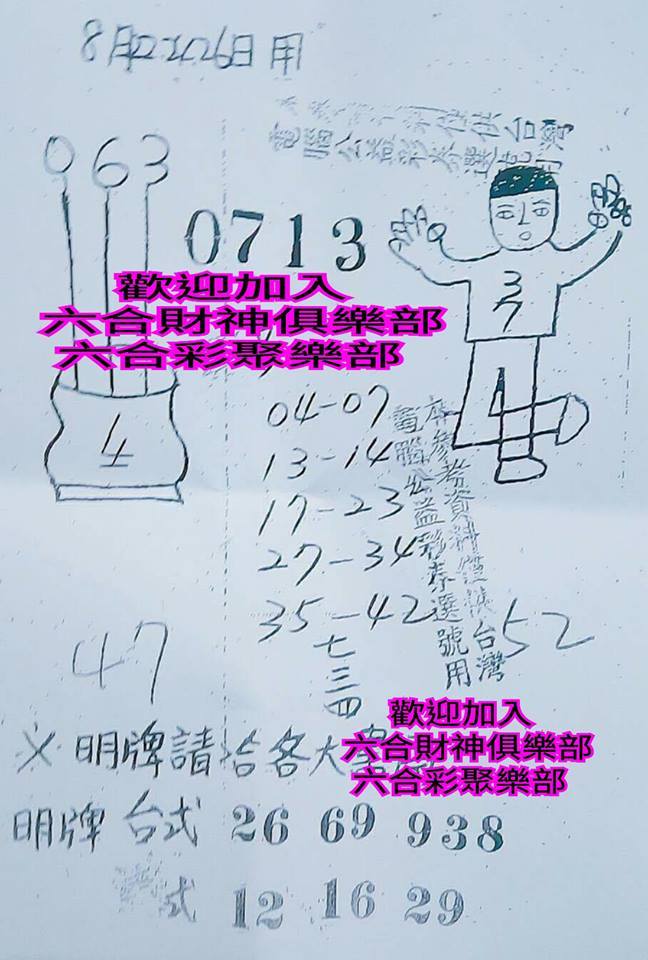 8月22.24.26日用
供台灣
電腦公益彩券選號用
0 6 3
0713
歡迎加入
六合財神俱樂部
六合彩聚樂部
3
7
1
4
04-07
13-14
17-23
27-34
35-42
本參考資料僅供台灣
電腦公益彩券選號用
52
47
七三四
明牌請洽客大
歡迎加入
六合財神俱樂部
六合彩聚樂部
明牌 台式 26 69 938
式 12 16 29